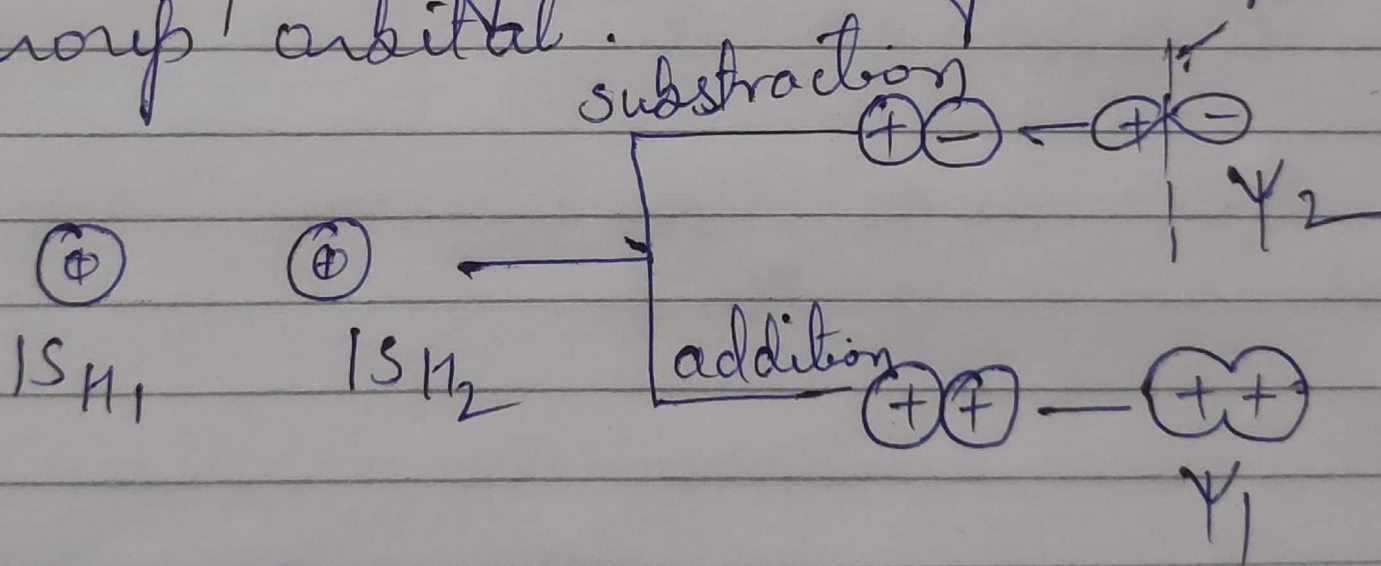 orbital.
substraction
⊕ ⊖ ← + -
Ψ2
⊕ ⊕
1SH1 1SH2
addition
⊕ ⊕ — + +
Ψ1